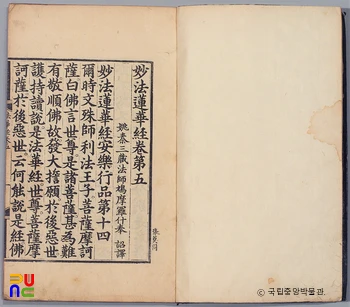 妙法蓮華經卷第五
姚秦三藏法師鳩摩羅什奉 詔譯
妙法蓮華經安樂行品第十四
爾時文殊師利法王子菩薩摩訶
薩白佛言世尊是諸菩薩甚為難
有敬順佛故發大誓願於後惡世
護持讀說是法華經世尊菩薩摩
訶薩於後惡世云何能說是經佛
국립중앙박물관